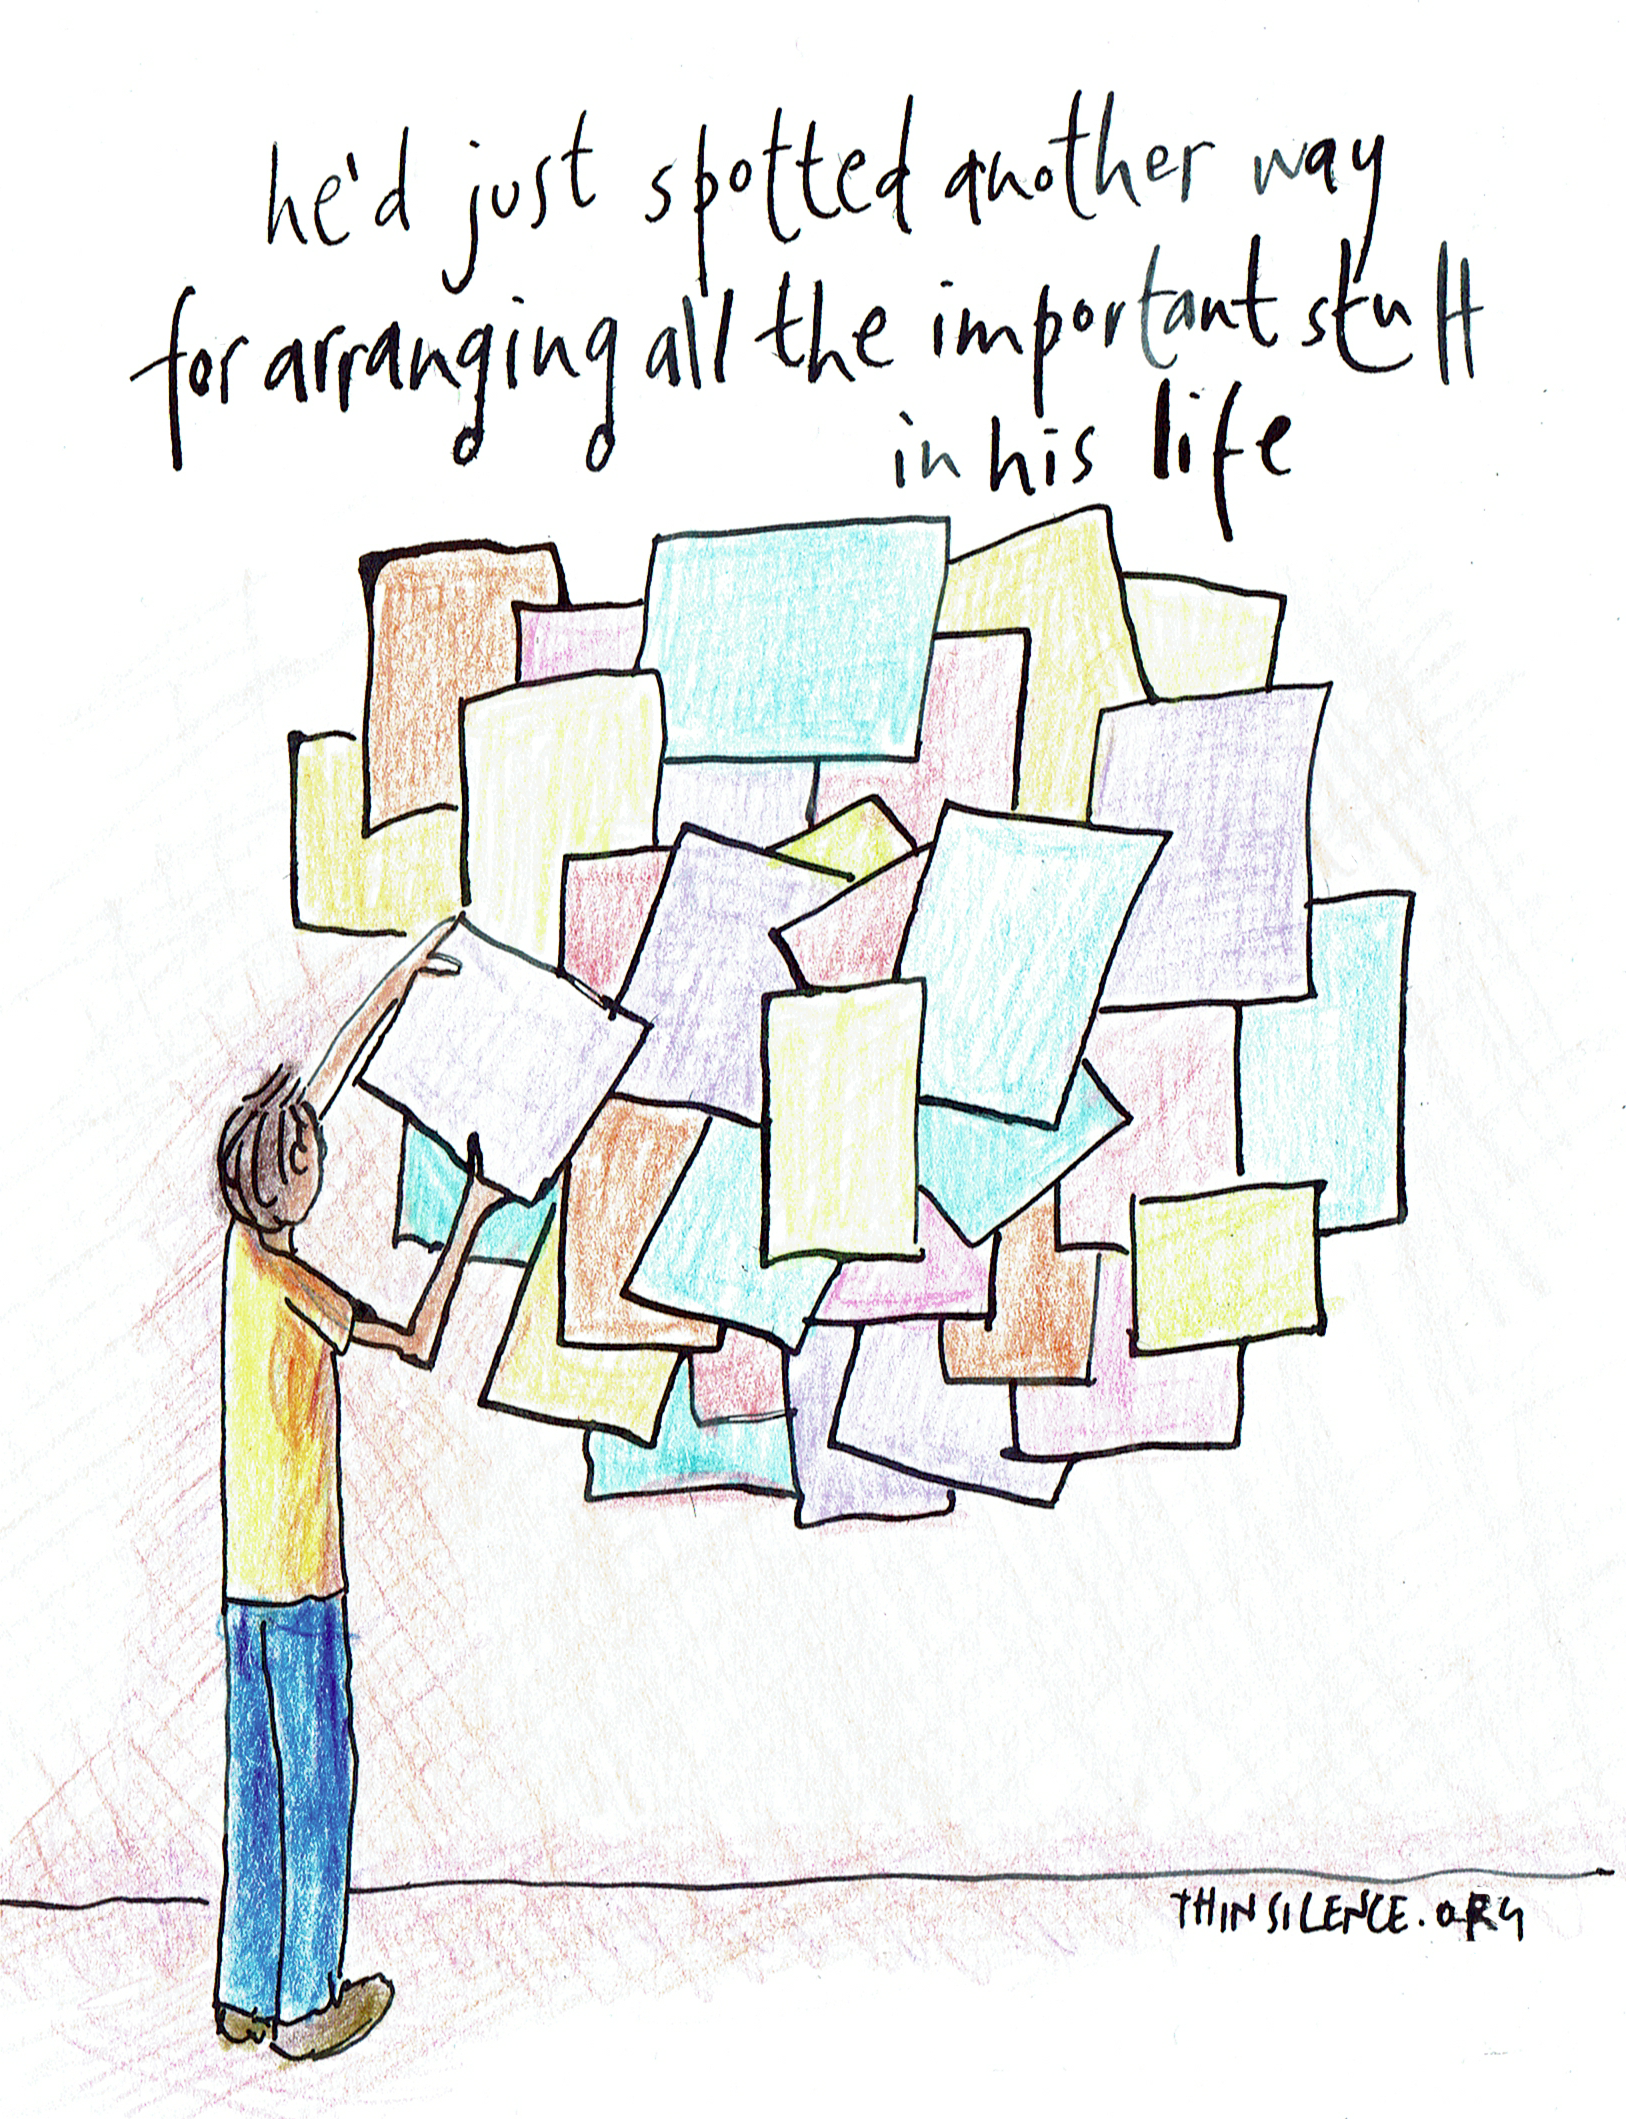 he'd just spotted another way
for arranging all the important stuff
in his life
THINSILENCE.ORG